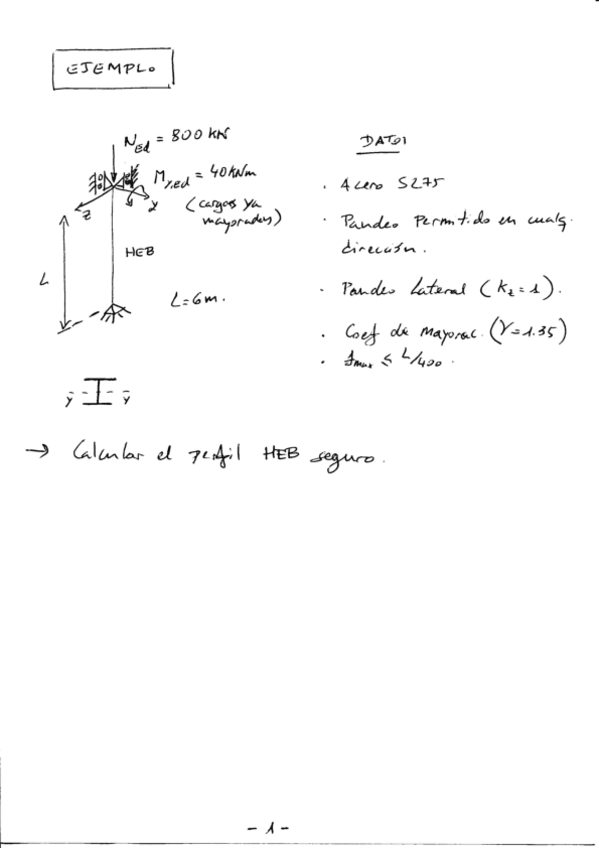 EJEMPLO
N_Ed = 800 kN
M_y,ed = 40 kNm
(cargas ya
mayoradas)
z
y
HEB
L
L = 6 m.
y y
DATOS
. Acero S275
. Pandeo Permitido en cualq.
dirección.
. Pandeo Lateral (k_z = 1).
. Coef de mayorac. (γ = 1.35)
. f_max ≤ L/400.
→ Calcular el perfil HEB seguro.
- 1 -